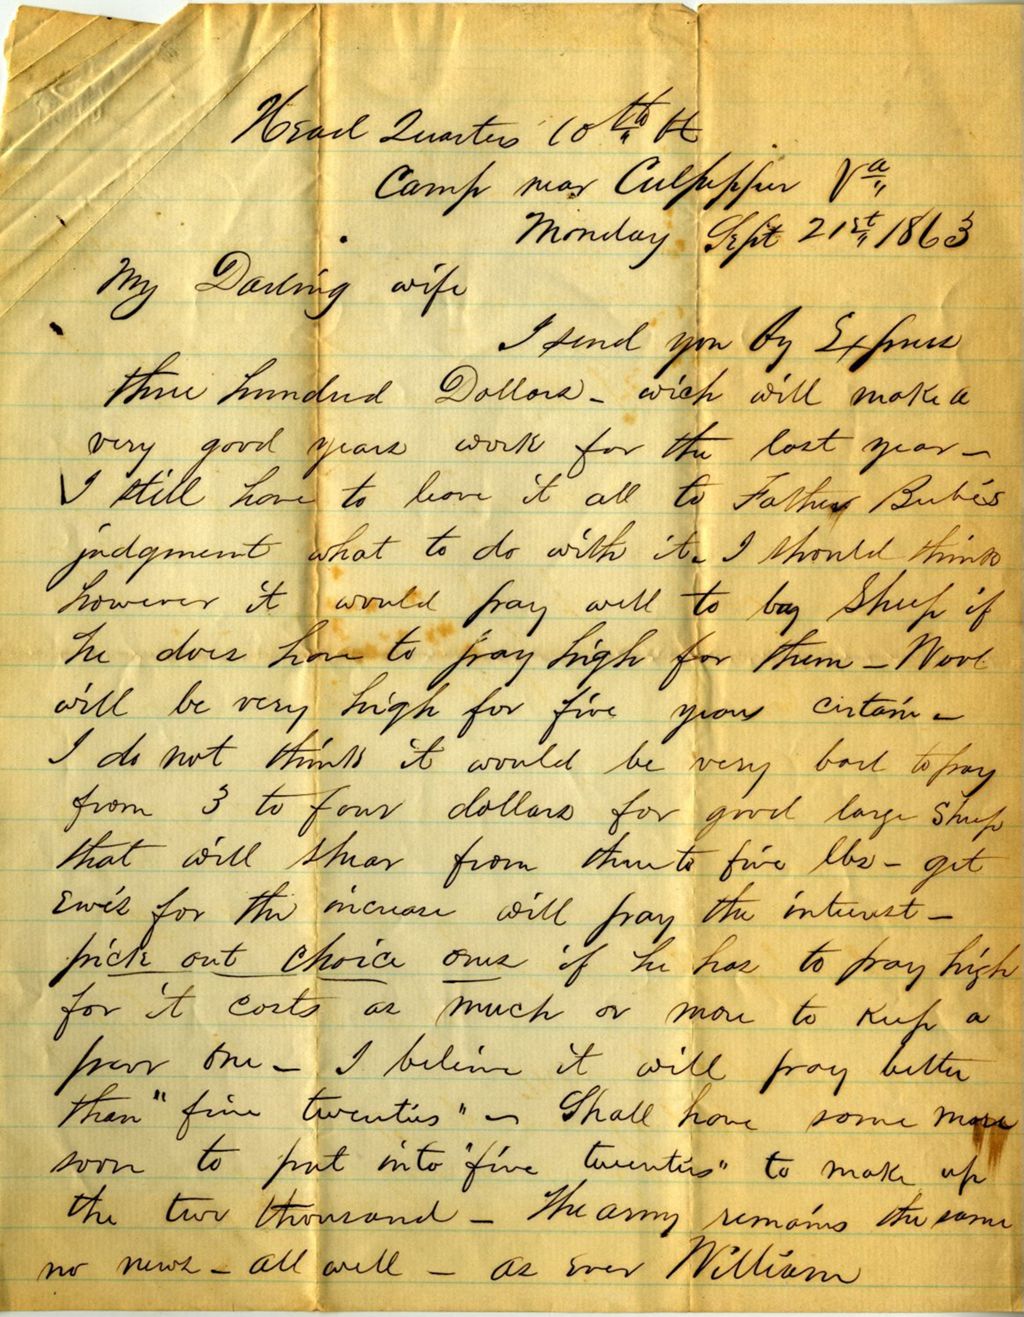 Head Quarters 10th Vt
Camp near Culpepper Va
Monday Sept 21st 1863
My Darling wife
I send you by Express
three hundred Dollars - wich will make a
very good years work for the last year -
I still have to leave it all to Father
judgment what to do with it. I should think
however it would pay well to buy Sheep if
he does have to pay high for them - Wool
will be very high for five years certain -
I do not think it would be very bad to pay
from 3 to four dollars for good large Sheep
that will shear from three to five lbs - get
Ewes for the increase will pay the interest -
pick out choice ones if he has to pay high
for it costs as much or more to keep a
poor one - I believe it will pay better
than "five twenties" - Shall have some more
soon to put into "five twenties" to make up
the two thousand - The army remains the same
no news - all well - as ever William